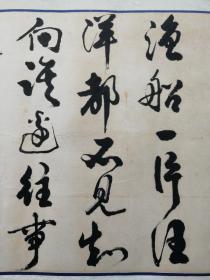 渔船一片汪
洋都不见知
向谁边往事